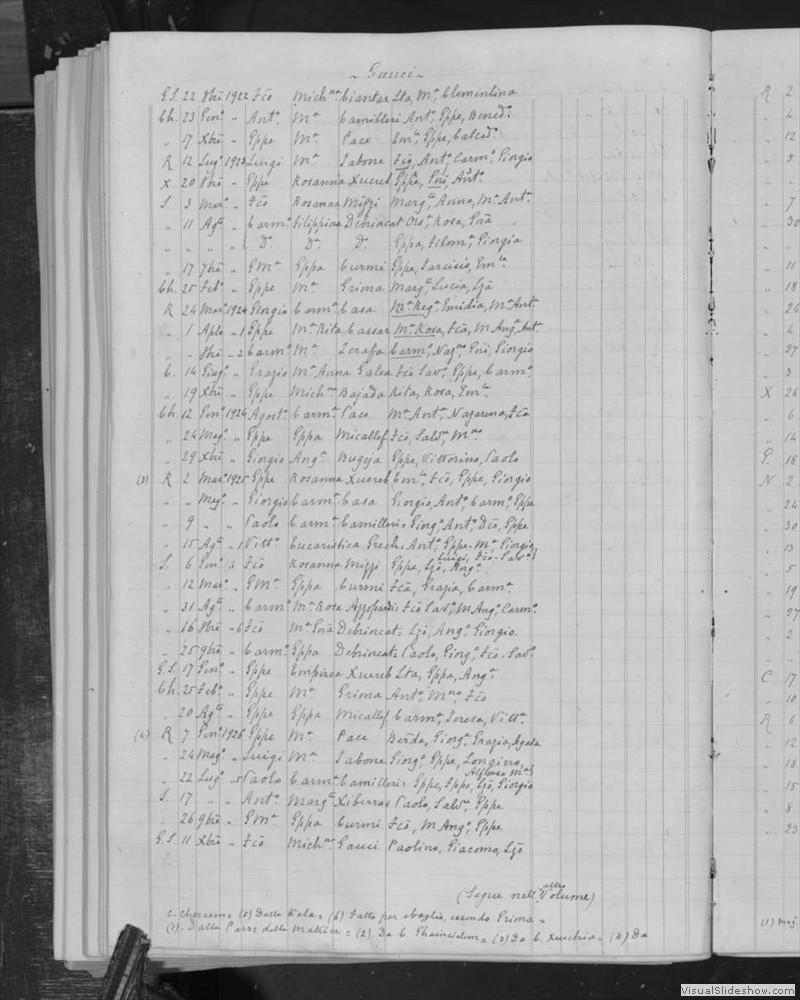 ~ Gauci ~
G.S. 22 8bre 1922 Fco Michna Ciantar Sta, Ma Clementina
Ch. 23 Geno „ Anto Ma Camilleri Anto, Gppe, Benedo
„ 17 Xbre „ Gppe Ma Pace Emle, Gppe, Calcedo
R 12 Lugo 1923 Luigi Ma Tabone Fco, Anto, Carmo, Giorgio
X 20 8bre „ Gppe Rosanna Xuereb Gppa, Gni, Anto
S. 3 Maro „ Fco Rosanna Mizzi Marga, Anna, Ma Anta
„ 11 Ago „ Carmo Filippina Debrincat Orsa, Rosa,
„ „ „ „ Do Do Do Gppa, Filoma, Giorgia
„ 17 7bre „ GMa Gppa Curmi Gppe, Tarcisio, Emle
Ch. 25 Febo „ Gppe Ma Grima Marga, Lucia,
R 24 Maro 1924 Giorgio Carma Casa Ma Rega, Emidia, Ma Anta
„ 1 Aple „ Gppe Ma Rita Cassar Ma Rosa, Fca, M Anga, Anta
„ „ 8bre „ Carmo Ma Carmo, Nazno, Gni, Giorgio
C. 14 Giugo „ Grazio Ma Anna Galea Fco Savo, Gppe, Carmo
„ 19 Xbre „ Gppe Michna Bajada Rita, Rosa, Emla
Ch. 12 Geno 1924 Agosto Carma Pace Ma Anta, Nazarena, Fca
„ 24 Mago „ Gppe Gppa Micallef Fco, Salvo, Mno
„ 29 Xbre „ Giorgio Anga Bugeja Gppe, Vittorino, Paolo
(3) R 2 Maro 1925 Gppe Rosanna Xuereb Emle, Fco, Gppe, Giorgio
„ „ Mago „ Giorgio Carma Casa Giorgio, Anto, Carmo, Gppe
„ 9 „ „ Paolo Carma Camilleri Giorgo, Anto, Gppe
„ 15 Ago „ Vitto Eucaristica Grech Anto, Gppe Ma Giorgio
S. 6 Geno „ Fco Rosanna Mizzi Gppe, Ango, Luigi, Fco Savo
„ 12 Maro „ GMa Gppa Curmi Fca, Grazia, Carma
„ 31 Ago „ Carmo Ma Rosa Azzopardi Fco Savo, M Ango, Carmo
„ 16 8bre „ Fco Ma Debrincat Ango, Giorgio
„ 25 9bre „ Carmo Gppa Debrincat Paolo, Giorgo, Fco Savo
G.S. 17 Geno „ Gppe Empirea Xuereb Sta, Gppa, Anga
Ch. 25 Febo „ Gppe Ma Grima Anto, Mno, Fco
„ 20 Ago „ Gppe Gppa Micallef Carma, Teresa, Vitta
(4) R 7 Geno 1926 Gppe Ma Pace Giorga, Grazia, Agata
„ 24 Mago „ Luigi Ma Tabone Giorgo, Gppe, Longino, Alfonso Ma
„ 22 Lugo „ Paolo Carma Camilleri Gppe, Giorgio
S. 17 „ „ Anto Marga Xiberras Paolo, Salvo, Gppe
„ 26 9bre „ GMa Gppa Curmi Fco, M Ango, Gppe
G.S. 11 Xbre „ Fco Michna Gauci Paolino, Giacomo,
(Segue nell' altro Volume)
(5) Dalla Kala = (6) Fatto per sbaglio, essendo Grima =
(1) Dalla Parra della Matrice = (2) Da C. = (3) Da C. Xeuchia = (4) Da
R 2
„ 4
„ 12
„ 5
„ 7
„ 30
„ 11
„ 18
„ 26
„ 4
„ 27
„ 3
X 26
„ 6
„ 14
G. 18
N 2
„ 24
„ 30
„ 13
„ 5
„ 19
„ 27
„ 2
C 17
„ 10
R 6
„ 12
„ 18
„ 15
„ 8
„ 23
(1) Maj.
VisualSlideshow.com